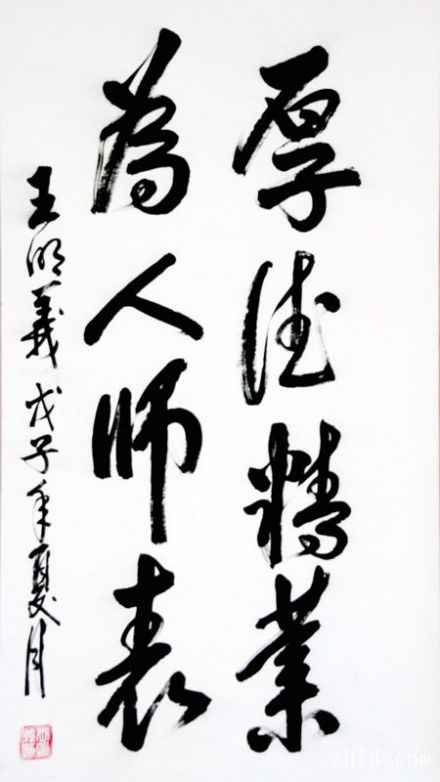 厚德精業
為人师表
王明義 戊子年夏月
zhld.com